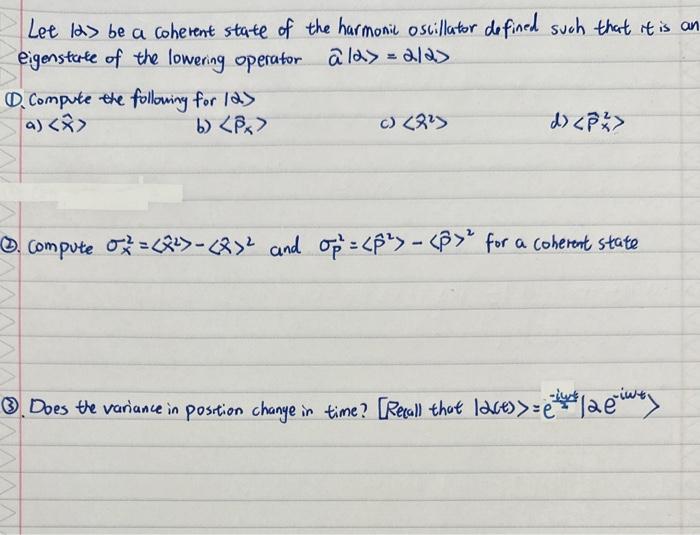 Let |α> be a coherent state of the harmonic oscillator defined such that it is an
eigenstate of the lowering operator â|α> = α|α>
①. Compute the following for |α>
a) <x̂> b) <p̂ₓ> c) <x̂²> d) <p̂ₓ²>
②. Compute σₓ² = <x̂²> - <x̂>² and σₚ² = <p̂²> - <p̂>² for a coherent state
③. Does the variance in position change in time? [Recall that |α(t)> = e^(-iωt/2) |α e^(-iωt)>